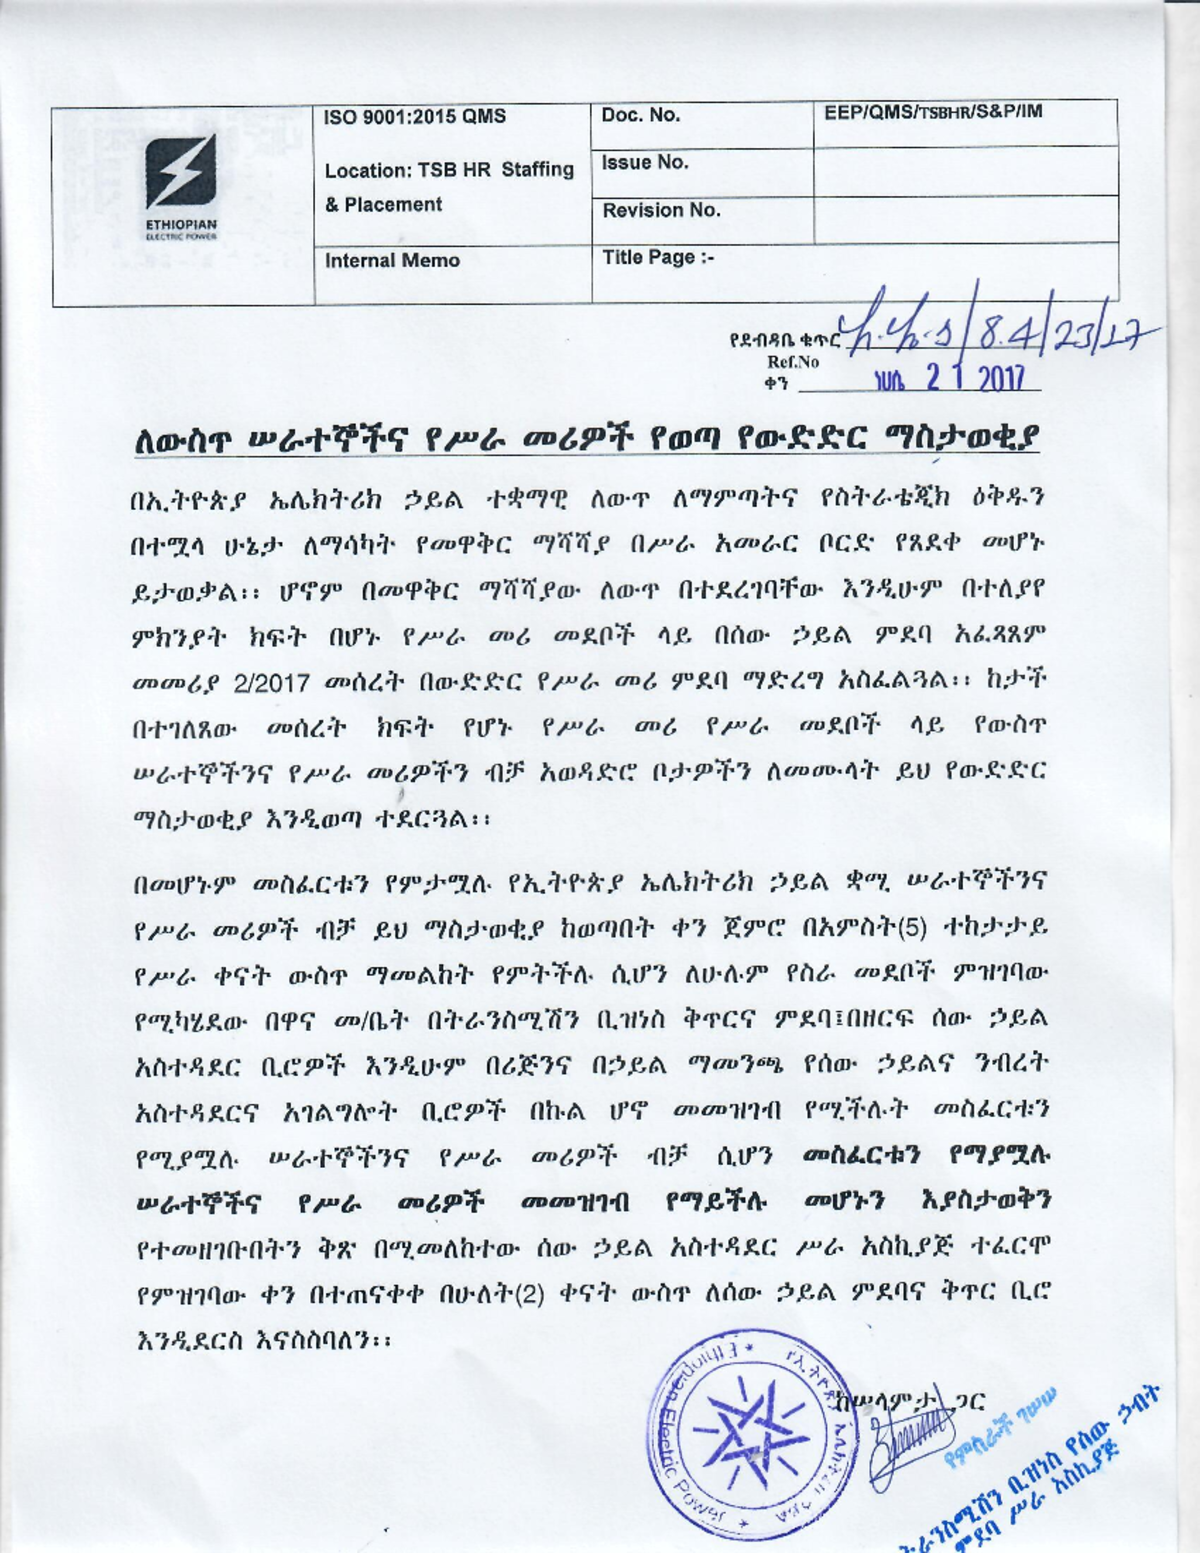 ETHIOPIAN
ELECTRIC POWER
ISO 9001:2015 QMS
Location: TSB HR Staffing
& Placement
Internal Memo
Doc. No.
EEP/QMS/TSBHR/S&P/IM
Issue No.
Revision No.
Title Page :-
የደብዳቤ ቁጥር ት.ት.ሰ/8.4/23/17
Ref.No
ቀን ነሀሴ 21 2017
ለውስጥ ሠራተኞችና የሥራ መሪዎች የወጣ የውድድር ማስታወቂያ
በኢትዮጵያ ኤሌክትሪክ ኃይል ተቋማዊ ለውጥ ለማምጣትና የስትራቴጂክ ዕቅዱን
በተሟላ ሁኔታ ለማሳካት የመዋቅር ማሻሻያ በሥራ አመራር ቦርድ የጸደቀ መሆኑ
ይታወቃል፡፡ ሆኖም በመዋቅር ማሻሻያው ለውጥ በተደረገባቸው እንዲሁም በተለያየ
ምክንያት ክፍት በሆኑ የሥራ መሪ መደቦች ላይ በሰው ኃይል ምደባ አፈጻጸም
መመሪያ 2/2017 መሰረት በውድድር የሥራ መሪ ምደባ ማድረግ አስፈልጓል፡፡ ከታች
በተገለጸው መሰረት ክፍት የሆኑ የሥራ መሪ የሥራ መደቦች ላይ የውስጥ
ሠራተኞችንና የሥራ መሪዎችን ብቻ አወዳድሮ ቦታዎችን ለመሙላት ይህ የውድድር
ማስታወቂያ እንዲወጣ ተደርጓል፡፡
በመሆኑም መስፈርቱን የምታሟሉ የኢትዮጵያ ኤሌክትሪክ ኃይል ቋሚ ሠራተኞችንና
የሥራ መሪዎች ብቻ ይህ ማስታወቂያ ከወጣበት ቀን ጀምሮ በአምስት(5) ተከታታይ
የሥራ ቀናት ውስጥ ማመልከት የምትችሉ ሲሆን ለሁሉም የስራ መደቦች ምዝገባው
የሚካሄደው በዋና መ/ቤት በትራንስሚሽን ቢዝነስ ቅጥርና ምደባ፤በዘርፍ ሰው ኃይል
አስተዳደር ቢሮዎች እንዲሁም በሪጅንና በኃይል ማመንጫ የሰው ኃይልና ንብረት
አስተዳደርና አገልግሎት ቢሮዎች በኩል ሆኖ መመዝገብ የሚችሉት መስፈርቱን
የሚያሟሉ ሠራተኞችንና የሥራ መሪዎች ብቻ ሲሆን መስፈርቱን የማያሟሉ
ሠራተኞችና የሥራ መሪዎች መመዝገብ የማይችሉ መሆኑን እያስታወቅን
የተመዘገቡበትን ቅጽ በሚመለከተው ሰው ኃይል አስተዳደር ሥራ አስኪያጅ ተፈርሞ
የምዝገባው ቀን በተጠናቀቀ በሁለት(2) ቀናት ውስጥ ለሰው ኃይል ምደባና ቅጥር ቢሮ
እንዲደርስ እናስስባለን፡፡
ከሠላምታ ጋር
የምስራች ገሠሠ
ትራንስሚሽን ቢዝነስ የሰው ኃብት
ምደባ ሥራ አስኪያጅ
የኢትዮጵያ ኤሌክትሪክ ኃይል
Ethiopian Electric Power